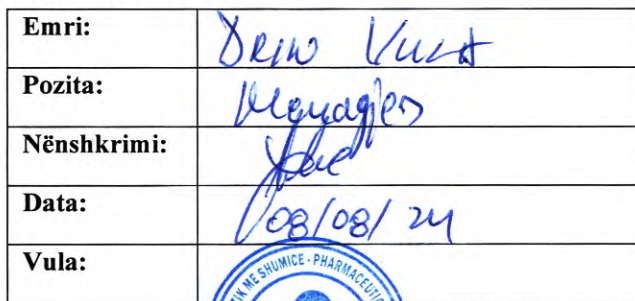 Emri: Drin Vula
Pozita: Menagjer
Nënshkrimi:
Data: 08/08/24
Vula:
ME SHUMICE - PHARMACEUTIC